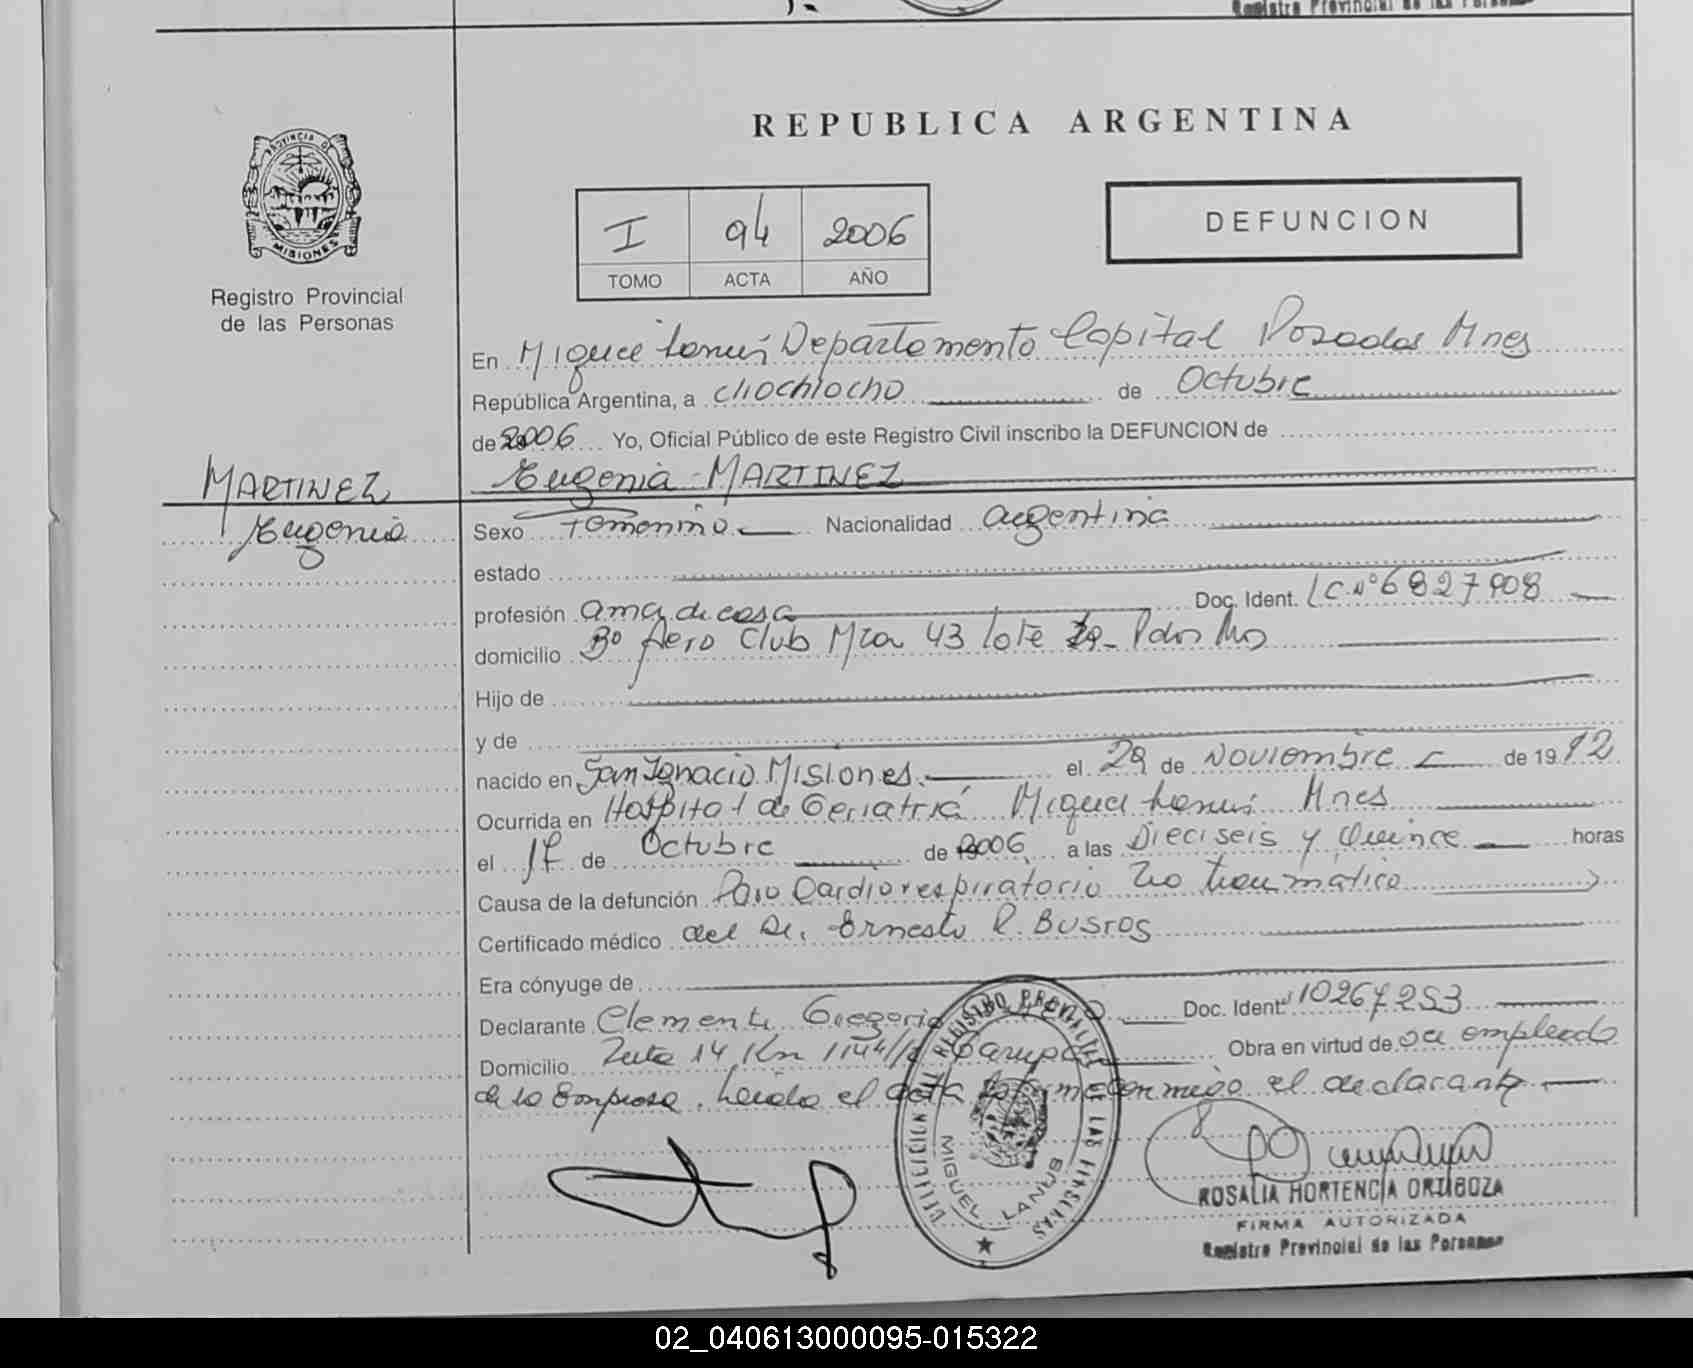 Registro Provincial de las Personas
REPUBLICA ARGENTINA
PROVINCIA DE
MISIONES
Registro Provincial
de las Personas
I 94 2006
TOMO ACTA AÑO
DEFUNCION
En Miguel Lanús Departamento Capital Posadas Mnes
República Argentina, a dhochiocho de Octubre
de 2006 Yo, Oficial Público de este Registro Civil inscribo la DEFUNCION de
MARTINEZ
Eugenia
Eugenia MARTINEZ
Sexo Femenino Nacionalidad argentina
estado
profesión ama de casa Doc. Ident. LC Nº 6827908
domicilio Bº Aero Club Mza 43 lote Pdas Mnes
Hijo de
y de
nacido en San Ignacio Misiones el 29 de Noviembre de 1912
Ocurrida en Hospital de Geriatria Miguel Lanús Mnes
el 17 de Octubre de 2006 a las Dieciseis y Quince horas
Causa de la defunción Paro Cardiorespiratorio No traumático
Certificado médico del Dr. Ernesto R. Bustos
Era cónyuge de
Declarante Clemente Gregorio Doc. Ident. 10267253
Domicilio Ruta 14 Km Obra en virtud de ser empleado
de la Empresa. Leida el acta la firma conmigo el declarante
DELEGACION DEL REGISTRO PROVINCIAL DE LAS PERSONAS
MIGUEL LANUS
ROSALIA HORTENCIA ORTIGOZA
FIRMA AUTORIZADA
Registro Provincial de las Personas
02_040613000095-015322